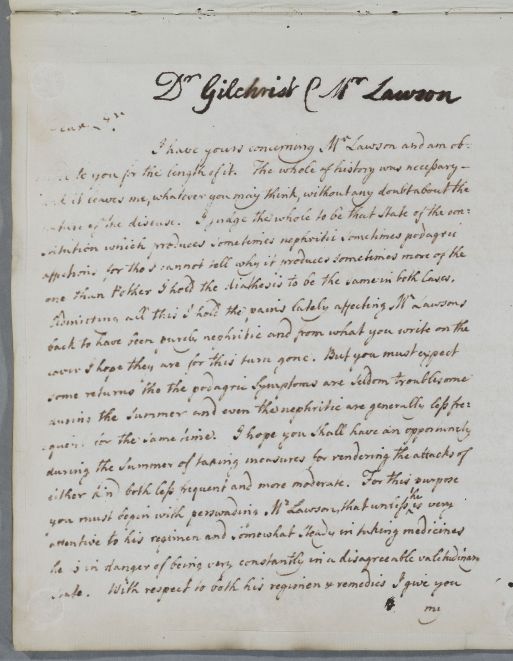 Dr Gilchrist C Mr Lawson
Dear Sir
I have yours concerning Mr Lawson and am ob:
you for the length of it. The whole of history was necessary
it leaves me, whatever you may think, without any doubt about the
nature of the disease. I judge the whole to be that state of the con:
stitution which produces sometimes nephritic sometimes podagric
affections for tho I cannot tell why it produces sometimes more of the
one than t'other I hold the diathesis to be the same in both cases.
Admitting all this I hold the pains lately affecting Mr Lawsons
back to have been purely nephritic and from what you write on the
cover I hope they are for this turn gone. But you must expect
some returns tho the podagric symptoms are seldom troublesome
during the Summer and even the nephritic are generally less fre:
quent for the same time. I hope you shall have an opportunity
during the Summer of taking measures for rendering the attacks of
either kind both less frequent and more moderate. For this purpose
you must begin with persuading Mr Lawson, that unless he is very
attentive to his regimen and somewhat steady in taking medicines
he is in danger of being very constantly in a disagreeable valitudinary
state. With respect to both his regimen & remedies I give you
my